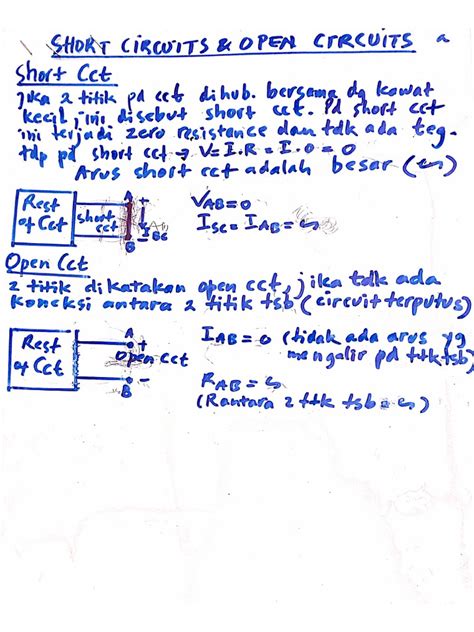 SHORT CIRCUITS & OPEN CIRCUITS
Short Cct
Jika 2 titik pd cct dihub. bersama dg kawat
kecil, ini disebut short cct. Pd short cct
ini terjadi zero resistance dan tdk ada teg.
tdp pd short cct → V = I.R = I.0 = 0
Arus short cct adalah besar (∞)
Rest
of Cct
short
cct
A
+
-
B
V_AB = 0
I_SC = I_AB = ∞
Open Cct
2 titik dikatakan open cct, jika tdk ada
koneksi antara 2 titik tsb (circuit terputus)
Rest
of Cct
A
+
Open cct
-
B
I_AB = 0 (tidak ada arus yg
mengalir pd ttk tsb)
R_AB = ∞
(R antara 2 ttk tsb = ∞)